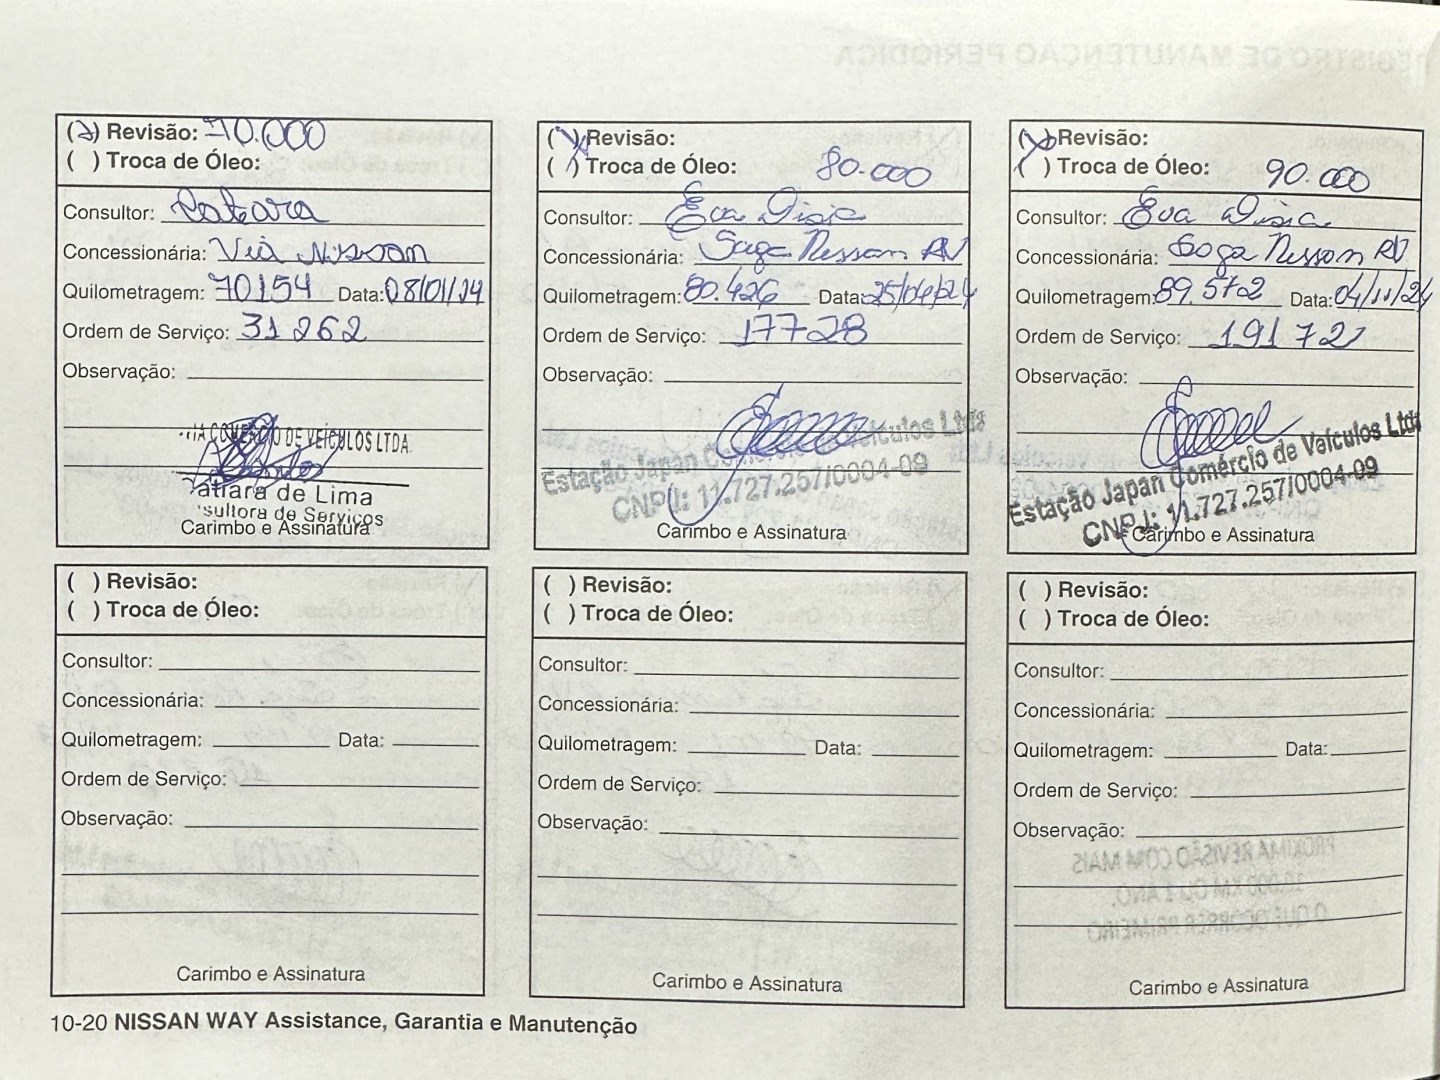 (x) Revisão: 70.000
( ) Troca de Óleo:
Consultor:
Concessionária: Via Nissan
Quilometragem: 70154 Data: 08/01/24
Ordem de Serviço: 31262
Observação:
COMERCIO DE VEÍCULOS LTDA.
de Lima
de Serviços
Carimbo e Assinatura
(x) Revisão:
( ) Troca de Óleo: 80.000
Consultor: Eva
Concessionária: Saga Nissan RV
Quilometragem: 80.426 Data: 25/04/24
Ordem de Serviço: 17728
Observação:
Estação Japan Comércio de Veículos Ltda
CNPJ: 11.727.257/0004-09
Carimbo e Assinatura
(x) Revisão:
( ) Troca de Óleo: 90.000
Consultor: Eva
Concessionária: Saga Nissan RV
Quilometragem: 89.572 Data: 04/11/24
Ordem de Serviço: 19172
Observação:
Estação Japan Comércio de Veículos Ltda
CNPJ: 11.727.257/0004-09
Carimbo e Assinatura
( ) Revisão:
( ) Troca de Óleo:
Consultor:
Concessionária:
Quilometragem: Data:
Ordem de Serviço:
Observação:
Carimbo e Assinatura
( ) Revisão:
( ) Troca de Óleo:
Consultor:
Concessionária:
Quilometragem: Data:
Ordem de Serviço:
Observação:
Carimbo e Assinatura
( ) Revisão:
( ) Troca de Óleo:
Consultor:
Concessionária:
Quilometragem: Data:
Ordem de Serviço:
Observação:
Carimbo e Assinatura
10-20 NISSAN WAY Assistance, Garantia e Manutenção